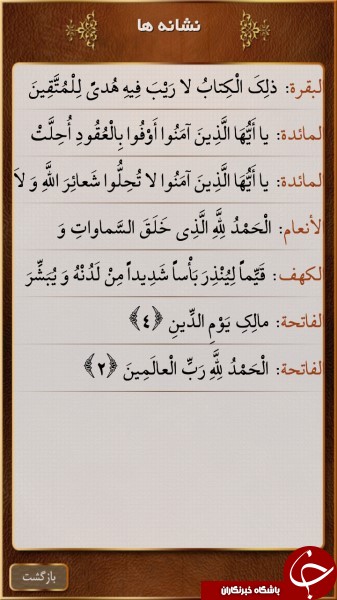 نشانه ها
لبقرة: ذلِکَ الْکِتابُ لا رَیْبَ فِیهِ هُدیً لِلْمُتَّقِینَ
لمائدة: یا أَیُّهَا الَّذِینَ آمَنُوا أَوْفُوا بِالْعُقُودِ أُحِلَّتْ
لمائدة: یا أَیُّهَا الَّذِینَ آمَنُوا لا تُحِلُّوا شَعائِرَ اللَّهِ وَ لاَ
لأنعام: الْحَمْدُ لِلَّهِ الَّذِی خَلَقَ السَّماواتِ وَ
لکهف: قَیِّماً لِیُنْذِرَ بَأْساً شَدِیداً مِنْ لَدُنْهُ وَ یُبَشِّرَ
لفاتحة: مالِکِ یَوْمِ الدِّینِ ﴿٤﴾
لفاتحة: الْحَمْدُ لِلَّهِ رَبِّ الْعالَمِینَ ﴿٢﴾
بازگشت
باشگاه خبرنگاران